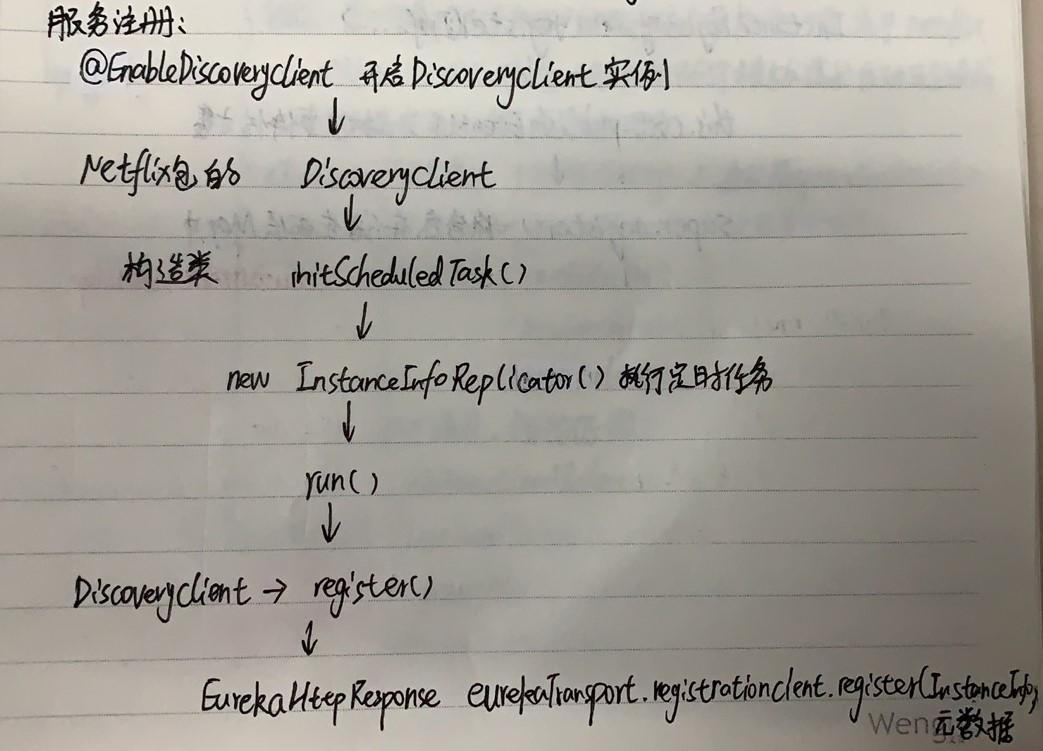 服务注册:
@EnableDiscoveryclient 开启Discoveryclient 实例
↓
Netflix包的 Discoveryclient
↓
构造类 initScheduledTask()
↓
new InstanceInfoReplicator() 执行定时任务
↓
run()
↓
Discoveryclient → register()
↓
EurekaHttpResponse eurekaTransport.registrationclent.register(InstanceInfo)
元数据